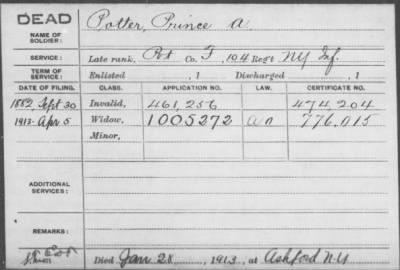 DEAD
NAME OF SOLDIER: Potter, Prince A.
SERVICE: Late rank, Pvt Co. F, 104 Regt NY Inf.
TERM OF SERVICE: Enlisted , 1 Discharged , 1
DATE OF FILING. CLASS. APPLICATION NO. LAW. CERTIFICATE NO.
1882, Sept 30 Invalid, 461,256 474,204
1913. Apr 5 Widow, 1005272 776,015
Minor,
ADDITIONAL SERVICES:
REMARKS:
Died Jan 28, 1913, at Ashford N.Y.